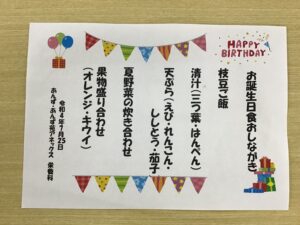 HAPPY
BIRTHDAY
お誕生日食おしながき
枝豆ご飯
清汁(三つ葉・はんぺん)
天ぷら(えび・れんこん・
ししとう・茄子)
夏野菜の炊き合わせ
果物盛り合わせ
(オレンジ・キウイ)
令和4年7月25日
あんず・あんず苑アネックス 栄養科